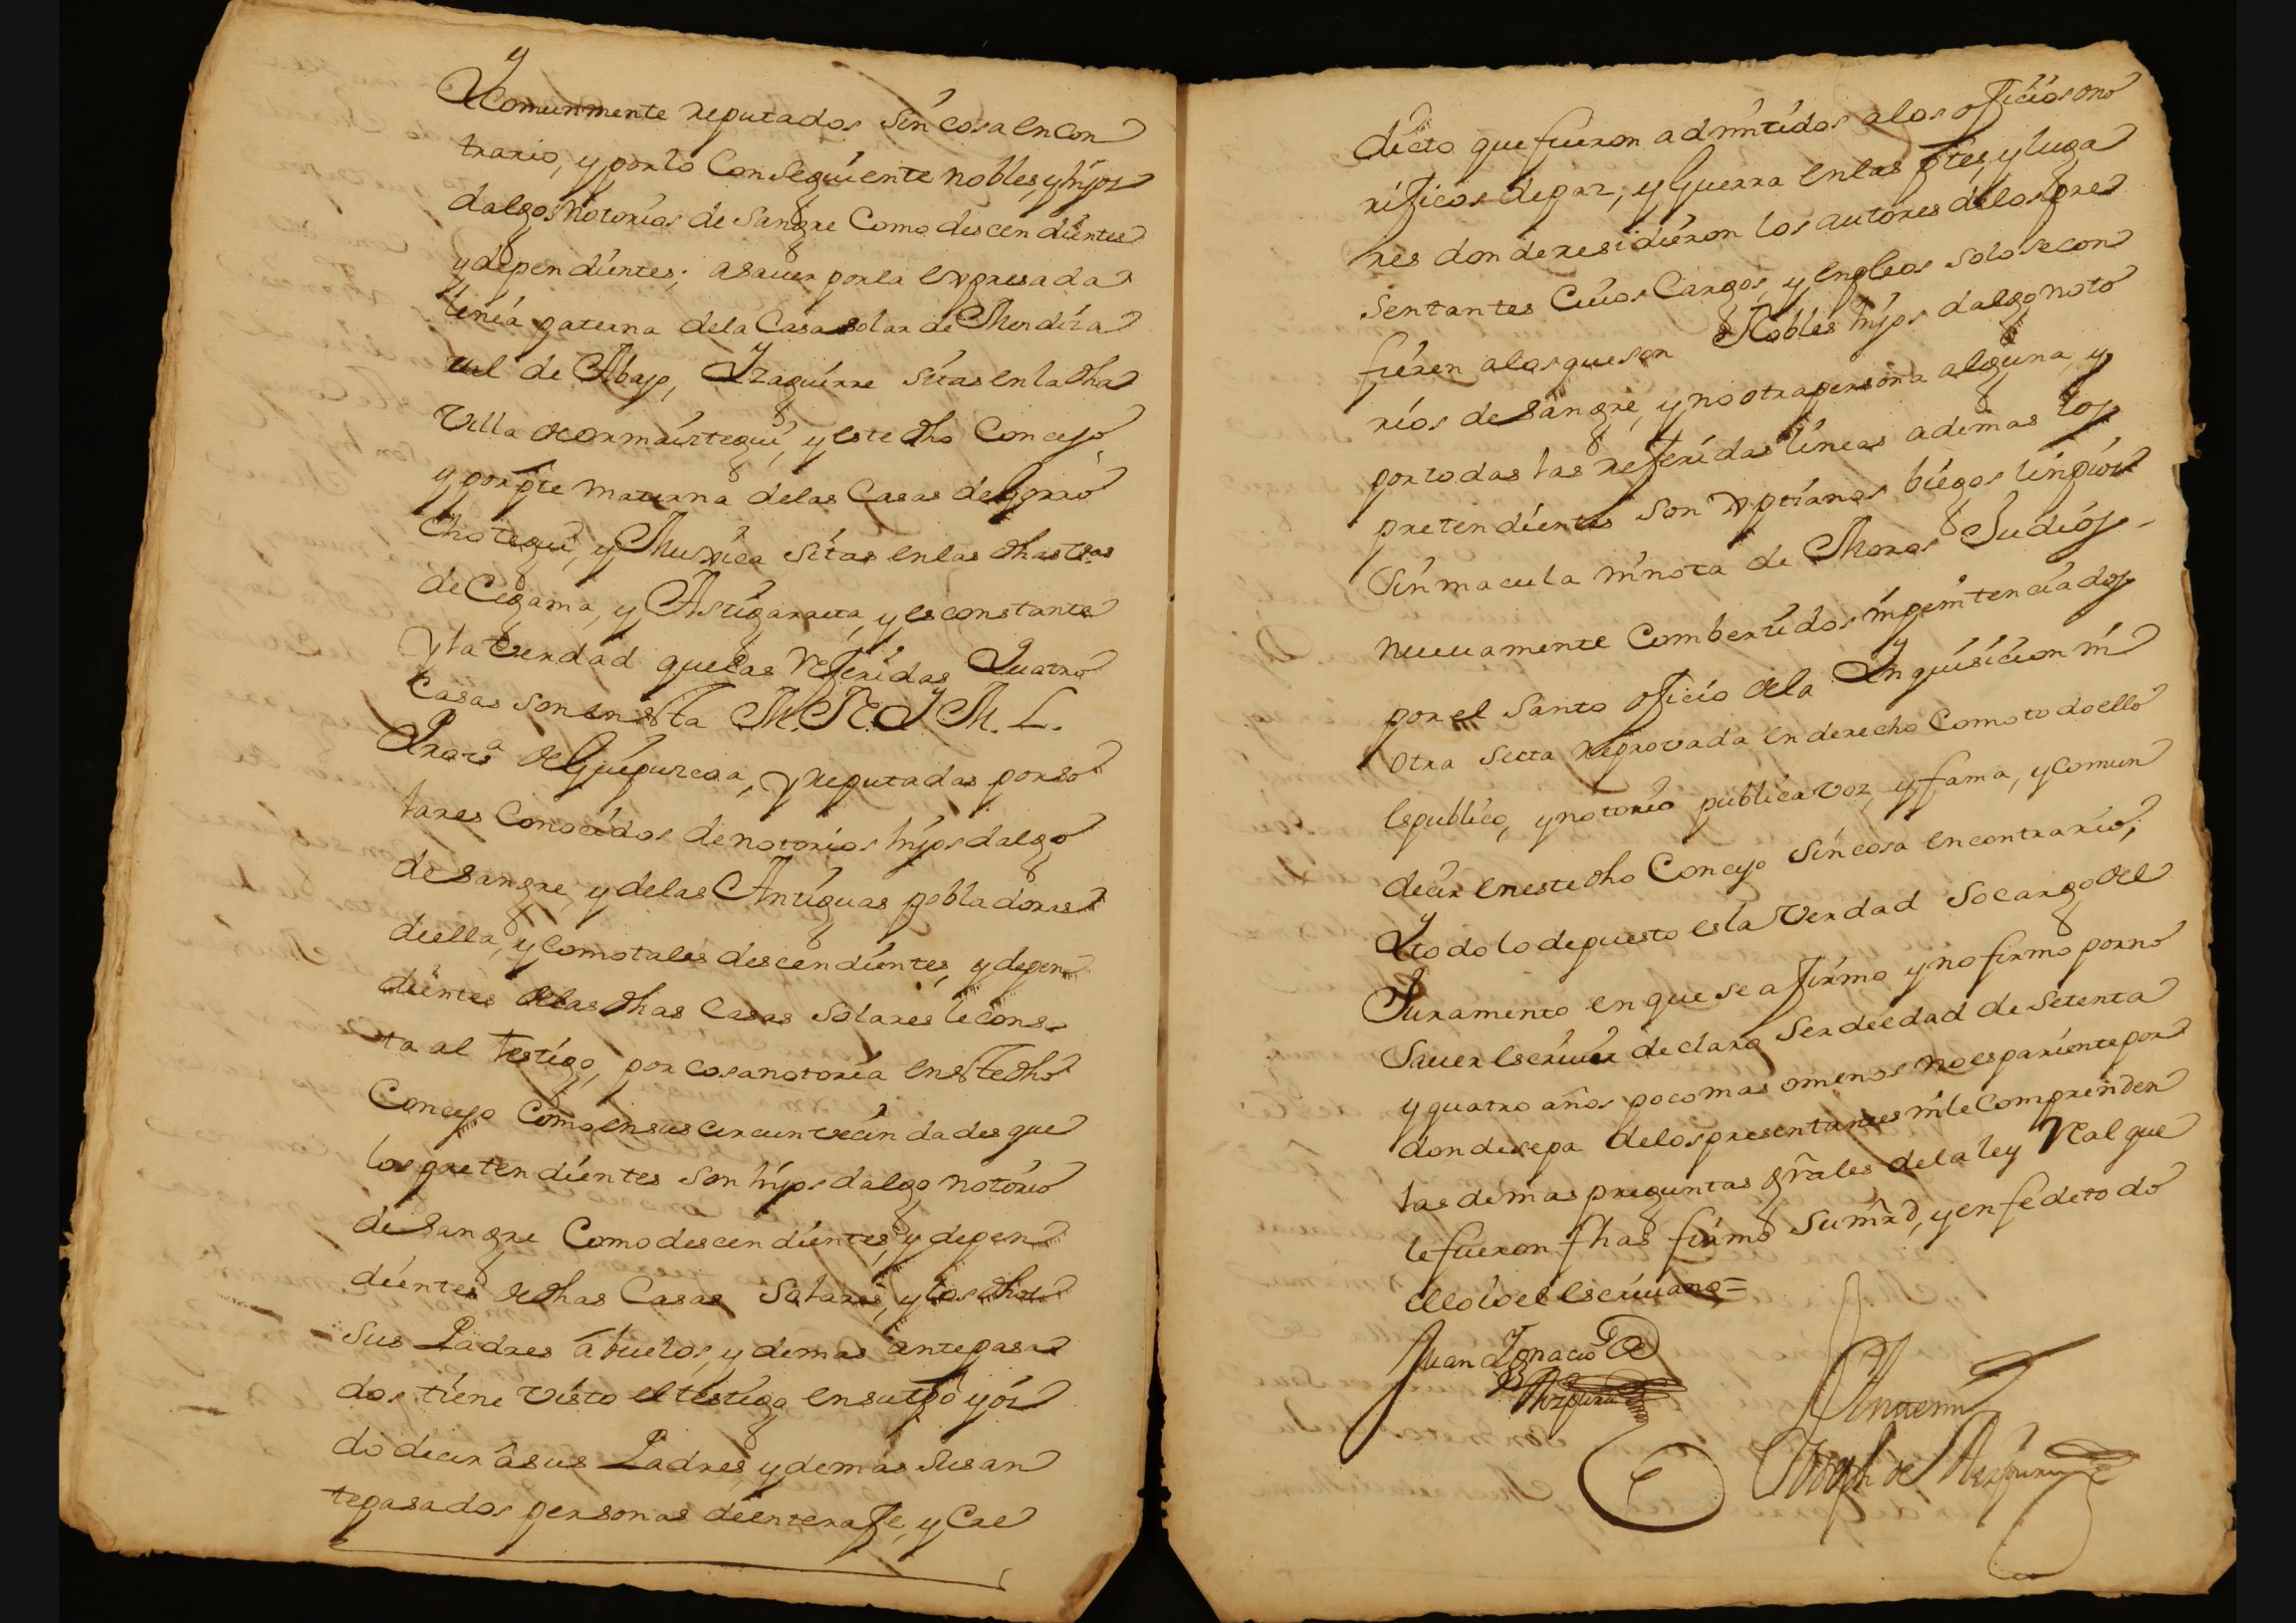 Y Comunmente reputados sin cosa en con
trario, y por lo Conseguiente nobles, y hijos
dalgos Notorios de Sangre Como descendientes
y dependientes; a sauer por la expresada
linea paterna de la Casa solar de Mendiza
ual de Abajo, Yzaguirre sitas en la dha
Villa de ormaiztegui, y este dho Concejo,
y por pte materna de las Casas de Gorro
chategui, y Muxica sitas en las dhas
de Cegama, y Astigarreta, y es constante
y la Verdad que las referidas Quatro
Casas son en esta M. N. Y M. L.
Prova de Guipuzcoa, y reputadas por so
lares Conocidos de notorios hijos dalgo
de Sangre, y de las Antiguas pobladoras
de ella, y como tales descendientes, y depen
dientes de las dhas Casas Solares le cons
ta al testigo, por cosa notoria en este dho
Concejo Como en sus circunvecindades que
los pretendientes son hijos dalgo notorio
de Sangre Como descendientes, y depen
dientes de dhas Casas Solares, y los dhos
sus Padres abuelos, y demas antepasa
dos tiene visto el testigo en su tpo y oi
do decir â sus Padres, y demas sus an
tepasados personas de entera fe, y Cre
dicto que fueron admitidos a los oficios ono
rificos de paz, y Guerra en las ptes, y luga
res donde residieron los autores de los pre
sentantes Cuios Cargos, y enpleos solo se con
fieren a los que son Nobles hijos dalgo noto
rios de sangre, y no otra persona alguna, y
por todas las referidas lineas ademas los
pretendientes son xptianos biejos linpios
sin macula ni nota de Moros Judios
nueuamente Combertidos ni penitenciados
por el Santo oficio de la Ynquisicion ni
otra secta reprovada en derecho Como todo ello
es publico, y notorio publica voz, y fama, y comun
decir en este dho Concejo sin cosa en contrario;
Y todo lo depuesto es la Verdad so cargo del
Juramento en que se afirmo y no firmo por no
sauer escriuir declaro ser de edad de setenta
y quatro años poco mas o menos no es pariente por
donde sepa de los presentantes ni le Comprenden
las demas preguntas grales de la ley Real que
le fueron fhas firmo su mrd, y en fe de todo
ello io el escriuano=
Juan Ygnacio de
Antemi
Joseph de